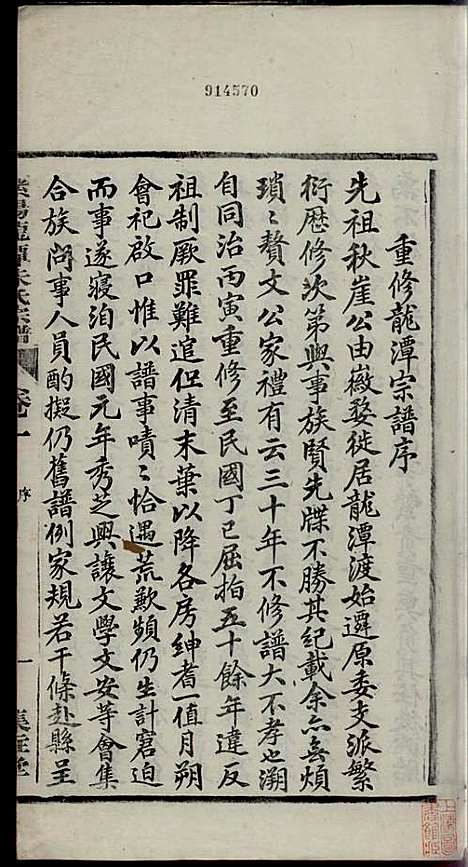 914570
重修龍潭宗譜序
先祖秋崖公由徽婺徙居龍潭渡始遷原委支派繁
衍歷修次第與事族賢先牒不勝其紀載余亦無煩
瑣瑣贅文公家禮有云三十年不修譜大不孝也溯
自同治丙寅重修至民國丁巳屈拍五十餘年違反
祖制厥罪難逭但清末葉以降各房紳耆一值月朔
會祀啟口惟以譜事嘖嘖恰遇荒歉頻仍生計窘迫
而事遂寢洎民國元年秀芝興讓文學文安等會集
合族問事人員酌擬仍舊譜例家規若干條赴縣呈
龍潭朱氏宗譜
卷一
序
一